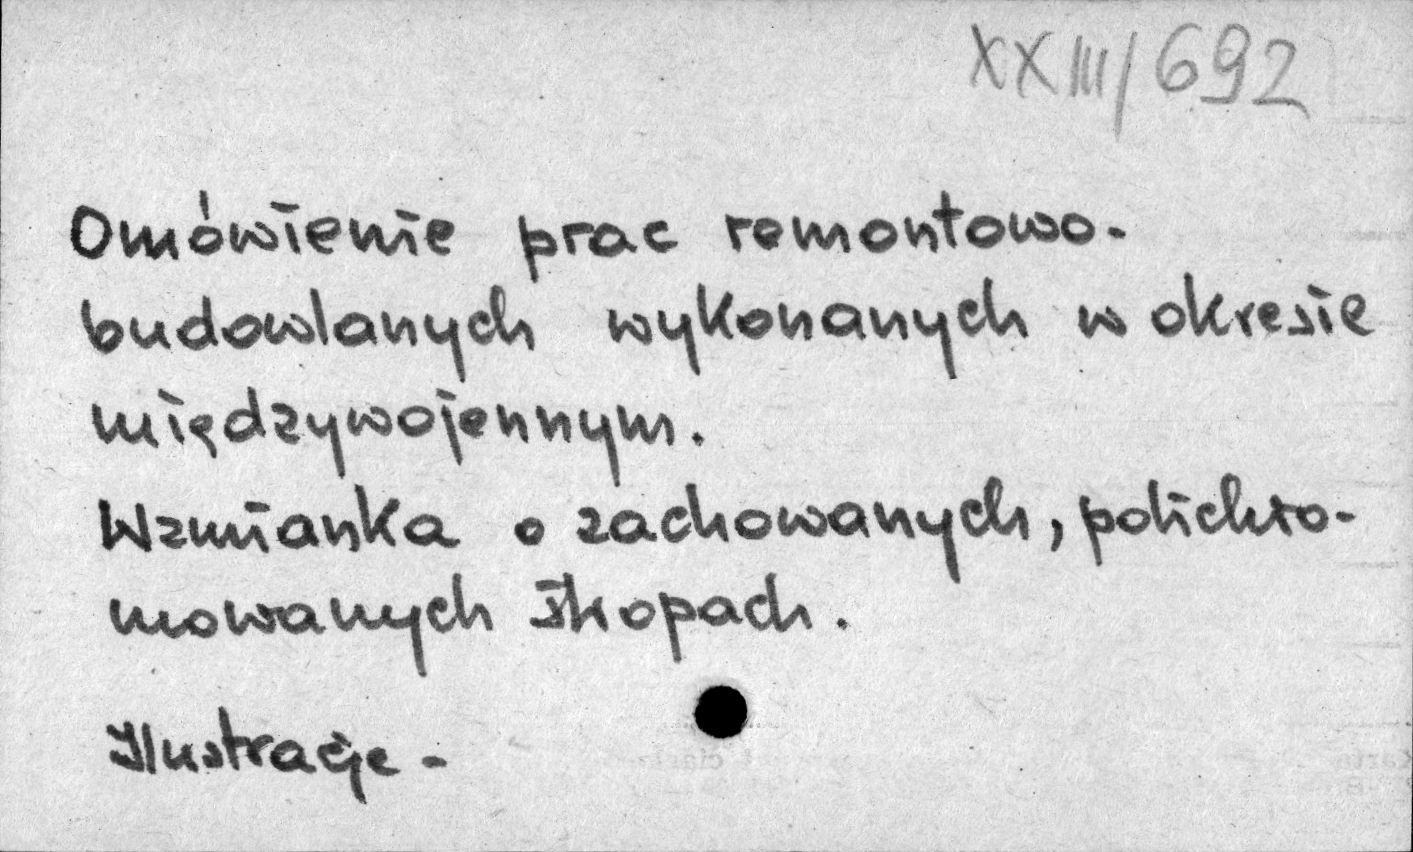 XXIII/692
Omówienie prac remontowo-
budowlanych wykonanych w okresie
międzywojennym.
Wzmianka o zachowanych, polichro-
mowanych stropach.
Ilustracje -